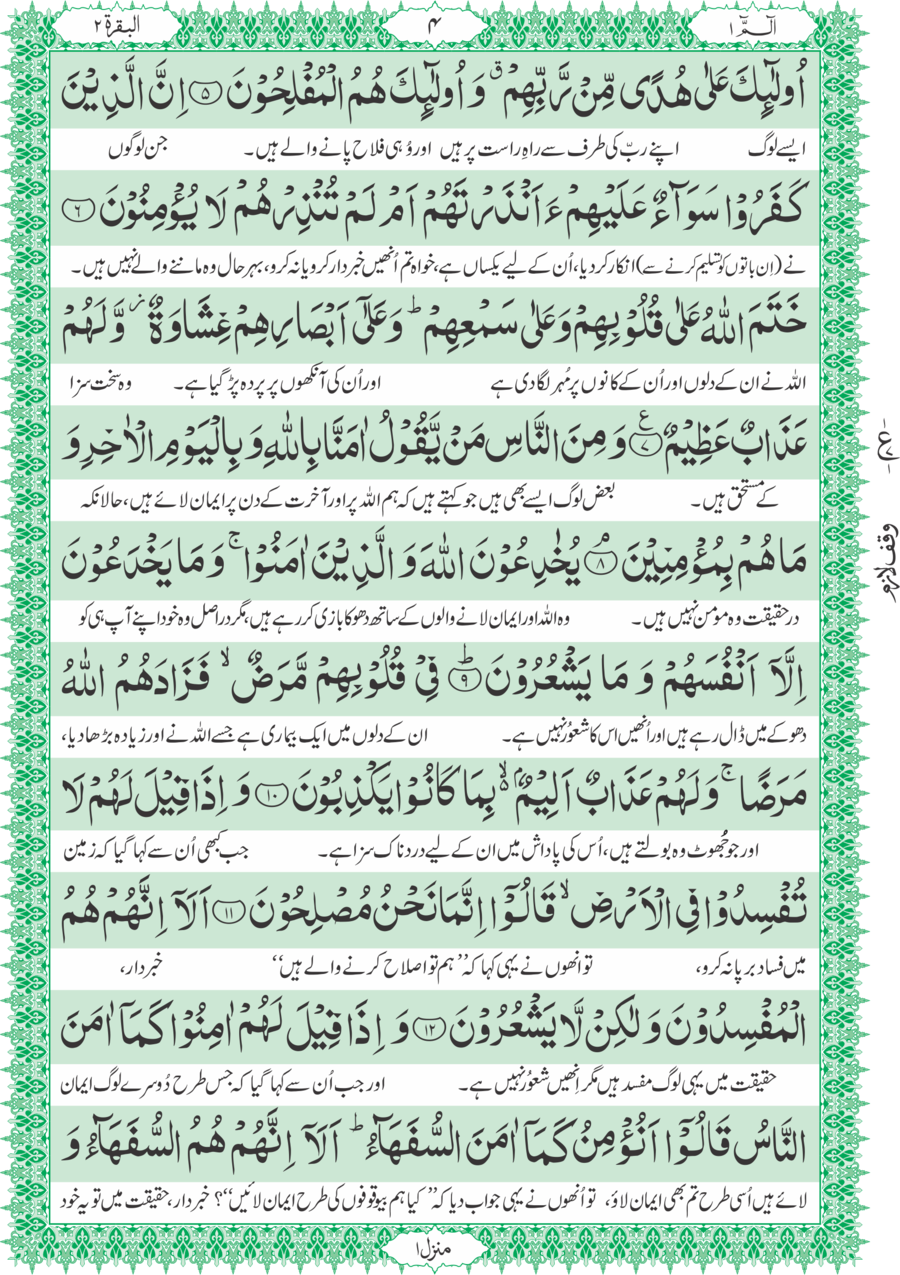 الٓمّٓ ١
۴
البقرة ٢
اُولٰٓئِكَ عَلٰى هُدًى مِّنْ رَّبِّهِمْ ۗ وَ اُولٰٓئِكَ هُمُ الْمُفْلِحُوْنَ ﴿۵﴾ اِنَّ الَّذِيْنَ
ایسے لوگ اپنے ربّ کی طرف سے راہِ راست پر ہیں اور وُہی فلاح پانے والے ہیں۔ جن لوگوں
كَفَرُوْا سَوَآءٌ عَلَيْهِمْ ءَاَنْذَرْتَهُمْ اَمْ لَمْ تُنْذِرْهُمْ لَا يُؤْمِنُوْنَ ﴿۶﴾
نے (اِن باتوں کو تسلیم کرنے سے) انکار کر دیا، اُن کے لیے یکساں ہے، خواہ تم اُنھیں خبردار کرو یا نہ کرو، بہرحال وہ ماننے والے نہیں ہیں۔
خَتَمَ اللّٰهُ عَلٰى قُلُوْبِهِمْ وَعَلٰى سَمْعِهِمْ ؕ وَعَلٰٓى اَبْصَارِهِمْ غِشَاوَةٌ ۫ وَّلَهُمْ
اللہ نے ان کے دلوں اور اُن کے کانوں پر مُہر لگا دی ہے اور اُن کی آنکھوں پر پردہ پڑ گیا ہے۔ وہ سخت سزا
عَذَابٌ عَظِيْمٌ ﴿۷﴾ ع وَ مِنَ النَّاسِ مَنْ يَّقُوْلُ اٰمَنَّا بِاللّٰهِ وَ بِالْيَوْمِ الْاٰخِرِ وَ
کے مستحق ہیں۔ بعض لوگ ایسے بھی ہیں جو کہتے ہیں کہ ہم اللہ پر اور آخرت کے دن پر ایمان لائے ہیں، حالانکہ
مَا هُمْ بِمُؤْمِنِيْنَ ﴿۸﴾ ۘ يُخٰدِعُوْنَ اللّٰهَ وَ الَّذِيْنَ اٰمَنُوْا ۚ وَمَا يَخْدَعُوْنَ
وقف لازم
در حقیقت وہ مومن نہیں ہیں۔ وہ اللہ اور ایمان لانے والوں کے ساتھ دھوکا بازی کر رہے ہیں، مگر دراصل وہ خود اپنے آپ ہی کو
اِلَّاۤ اَنْفُسَهُمْ وَ مَا يَشْعُرُوْنَ ﴿۹﴾ ؕ فِىْ قُلُوْبِهِمْ مَّرَضٌ ۙ فَزَادَهُمُ اللّٰهُ
دھوکے میں ڈال رہے ہیں اور اُنھیں اس کا شعور نہیں ہے۔ ان کے دلوں میں ایک بیماری ہے جسے اللہ نے اور زیادہ بڑھا دیا،
مَرَضًا ۚ وَلَهُمْ عَذَابٌ اَلِيْمٌۢ ۙ بِمَا كَانُوْا يَكْذِبُوْنَ ﴿۱۰﴾ وَ اِذَا قِيْلَ لَهُمْ لَا
اور جو جُھوٹ وہ بولتے ہیں، اُس کی پاداش میں ان کے لیے دردناک سزا ہے۔ جب کبھی اُن سے کہا گیا کہ زمین
تُفْسِدُوْا فِى الْاَرْضِ ۙ قَالُوْٓا اِنَّمَا نَحْنُ مُصْلِحُوْنَ ﴿۱۱﴾ اَلَآ اِنَّهُمْ هُمُ
میں فساد برپا نہ کرو، تو انھوں نے یہی کہا کہ ”ہم تو اصلاح کرنے والے ہیں“ خبردار،
الْمُفْسِدُوْنَ وَ لٰكِنْ لَّا يَشْعُرُوْنَ ﴿۱۲﴾ وَ اِذَا قِيْلَ لَهُمْ اٰمِنُوْا كَمَآ اٰمَنَ
حقیقت میں یہی لوگ مفسد ہیں مگر اِنھیں شعُور نہیں ہے۔ اور جب اُن سے کہا گیا کہ جس طرح دُوسرے لوگ ایمان
النَّاسُ قَالُوْٓا اَنُؤْمِنُ كَمَآ اٰمَنَ السُّفَهَآءُ ؕ اَلَآ اِنَّهُمْ هُمُ السُّفَهَآءُ وَ
لائے ہیں اُسی طرح تم بھی ایمان لاؤ، تو اُنھوں نے یہی جواب دیا کہ ”کیا ہم بیوقوفوں کی طرح ایمان لائیں“؟ خبردار، حقیقت میں تو یہ خود
منزل ١